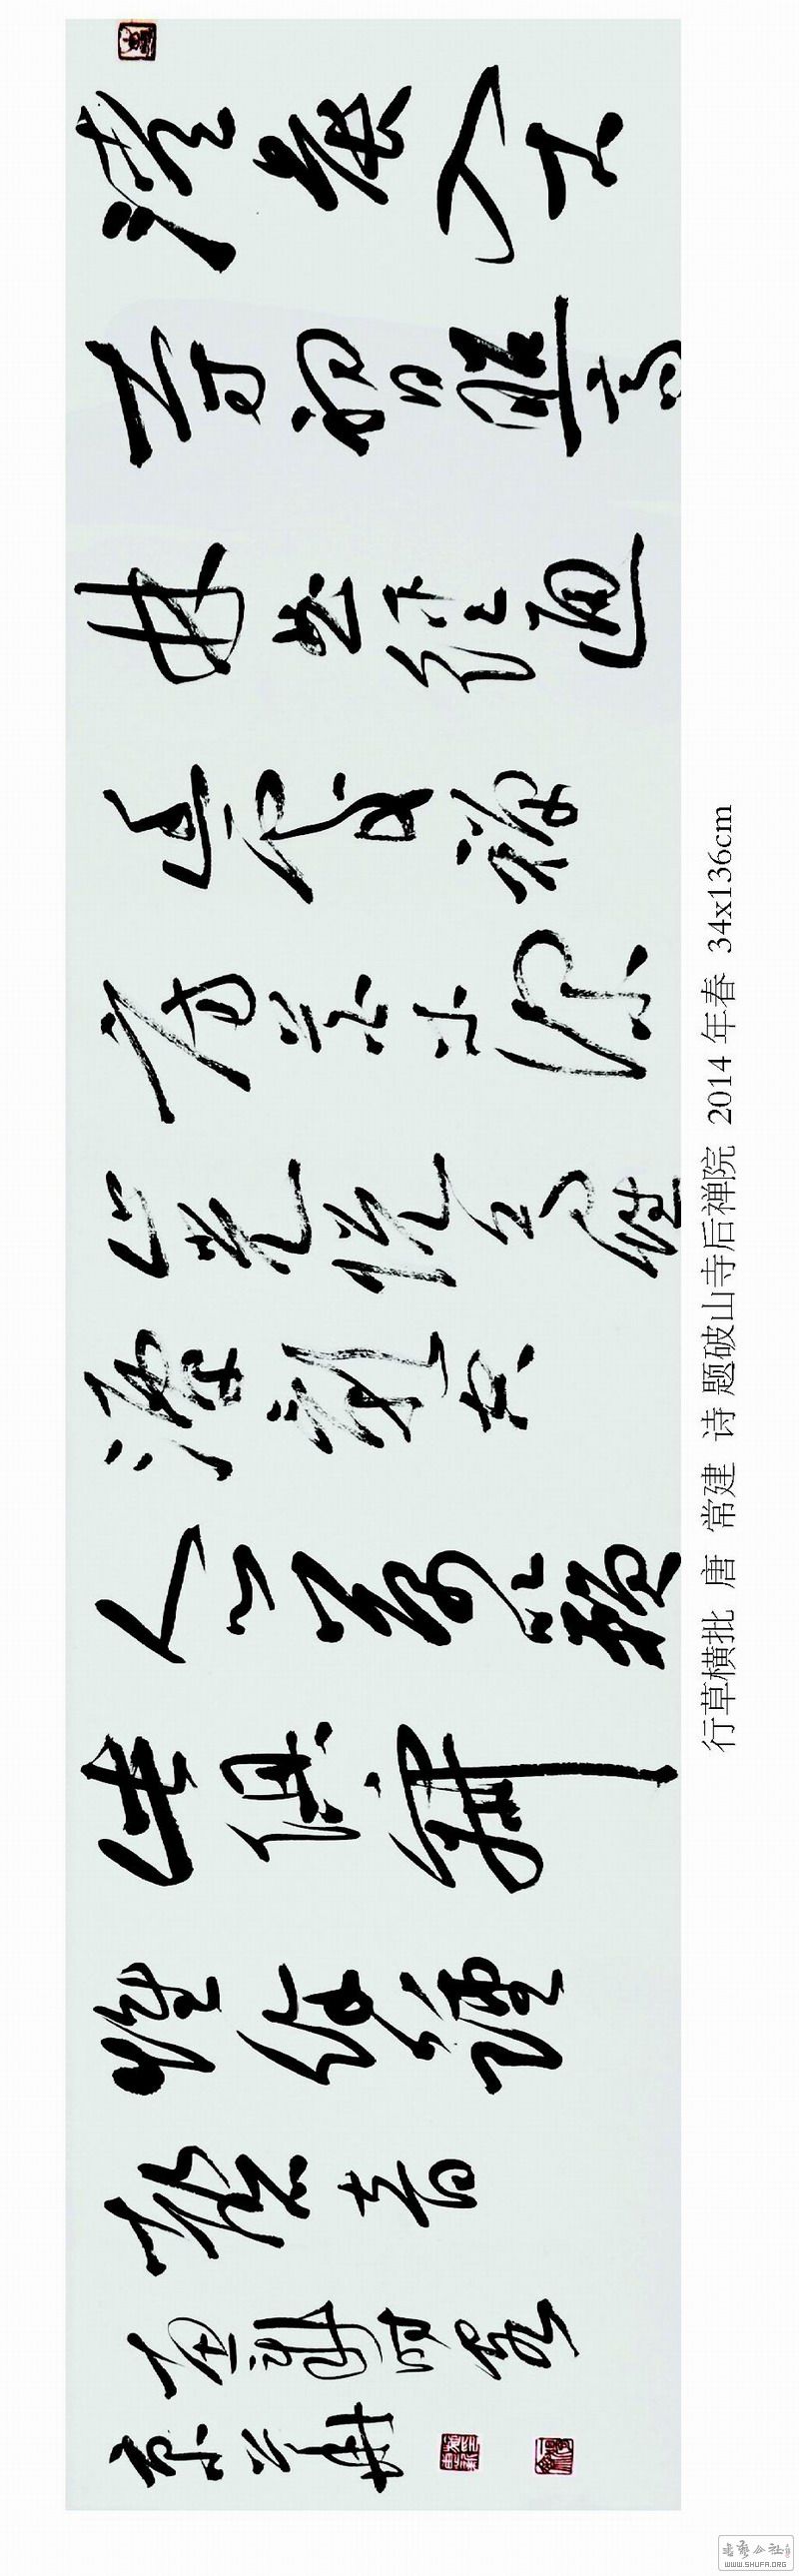 清晨入古
寺初日照高
林曲徑通
幽處禪
房花木深
山光悦鳥性
潭影空
人心萬籟
此俱寂
惟餘鐘
磬音
行草横批 唐 常建 诗 题破山寺后禅院 2014 年春 34x136cm
WWW.SHUFA.ORG